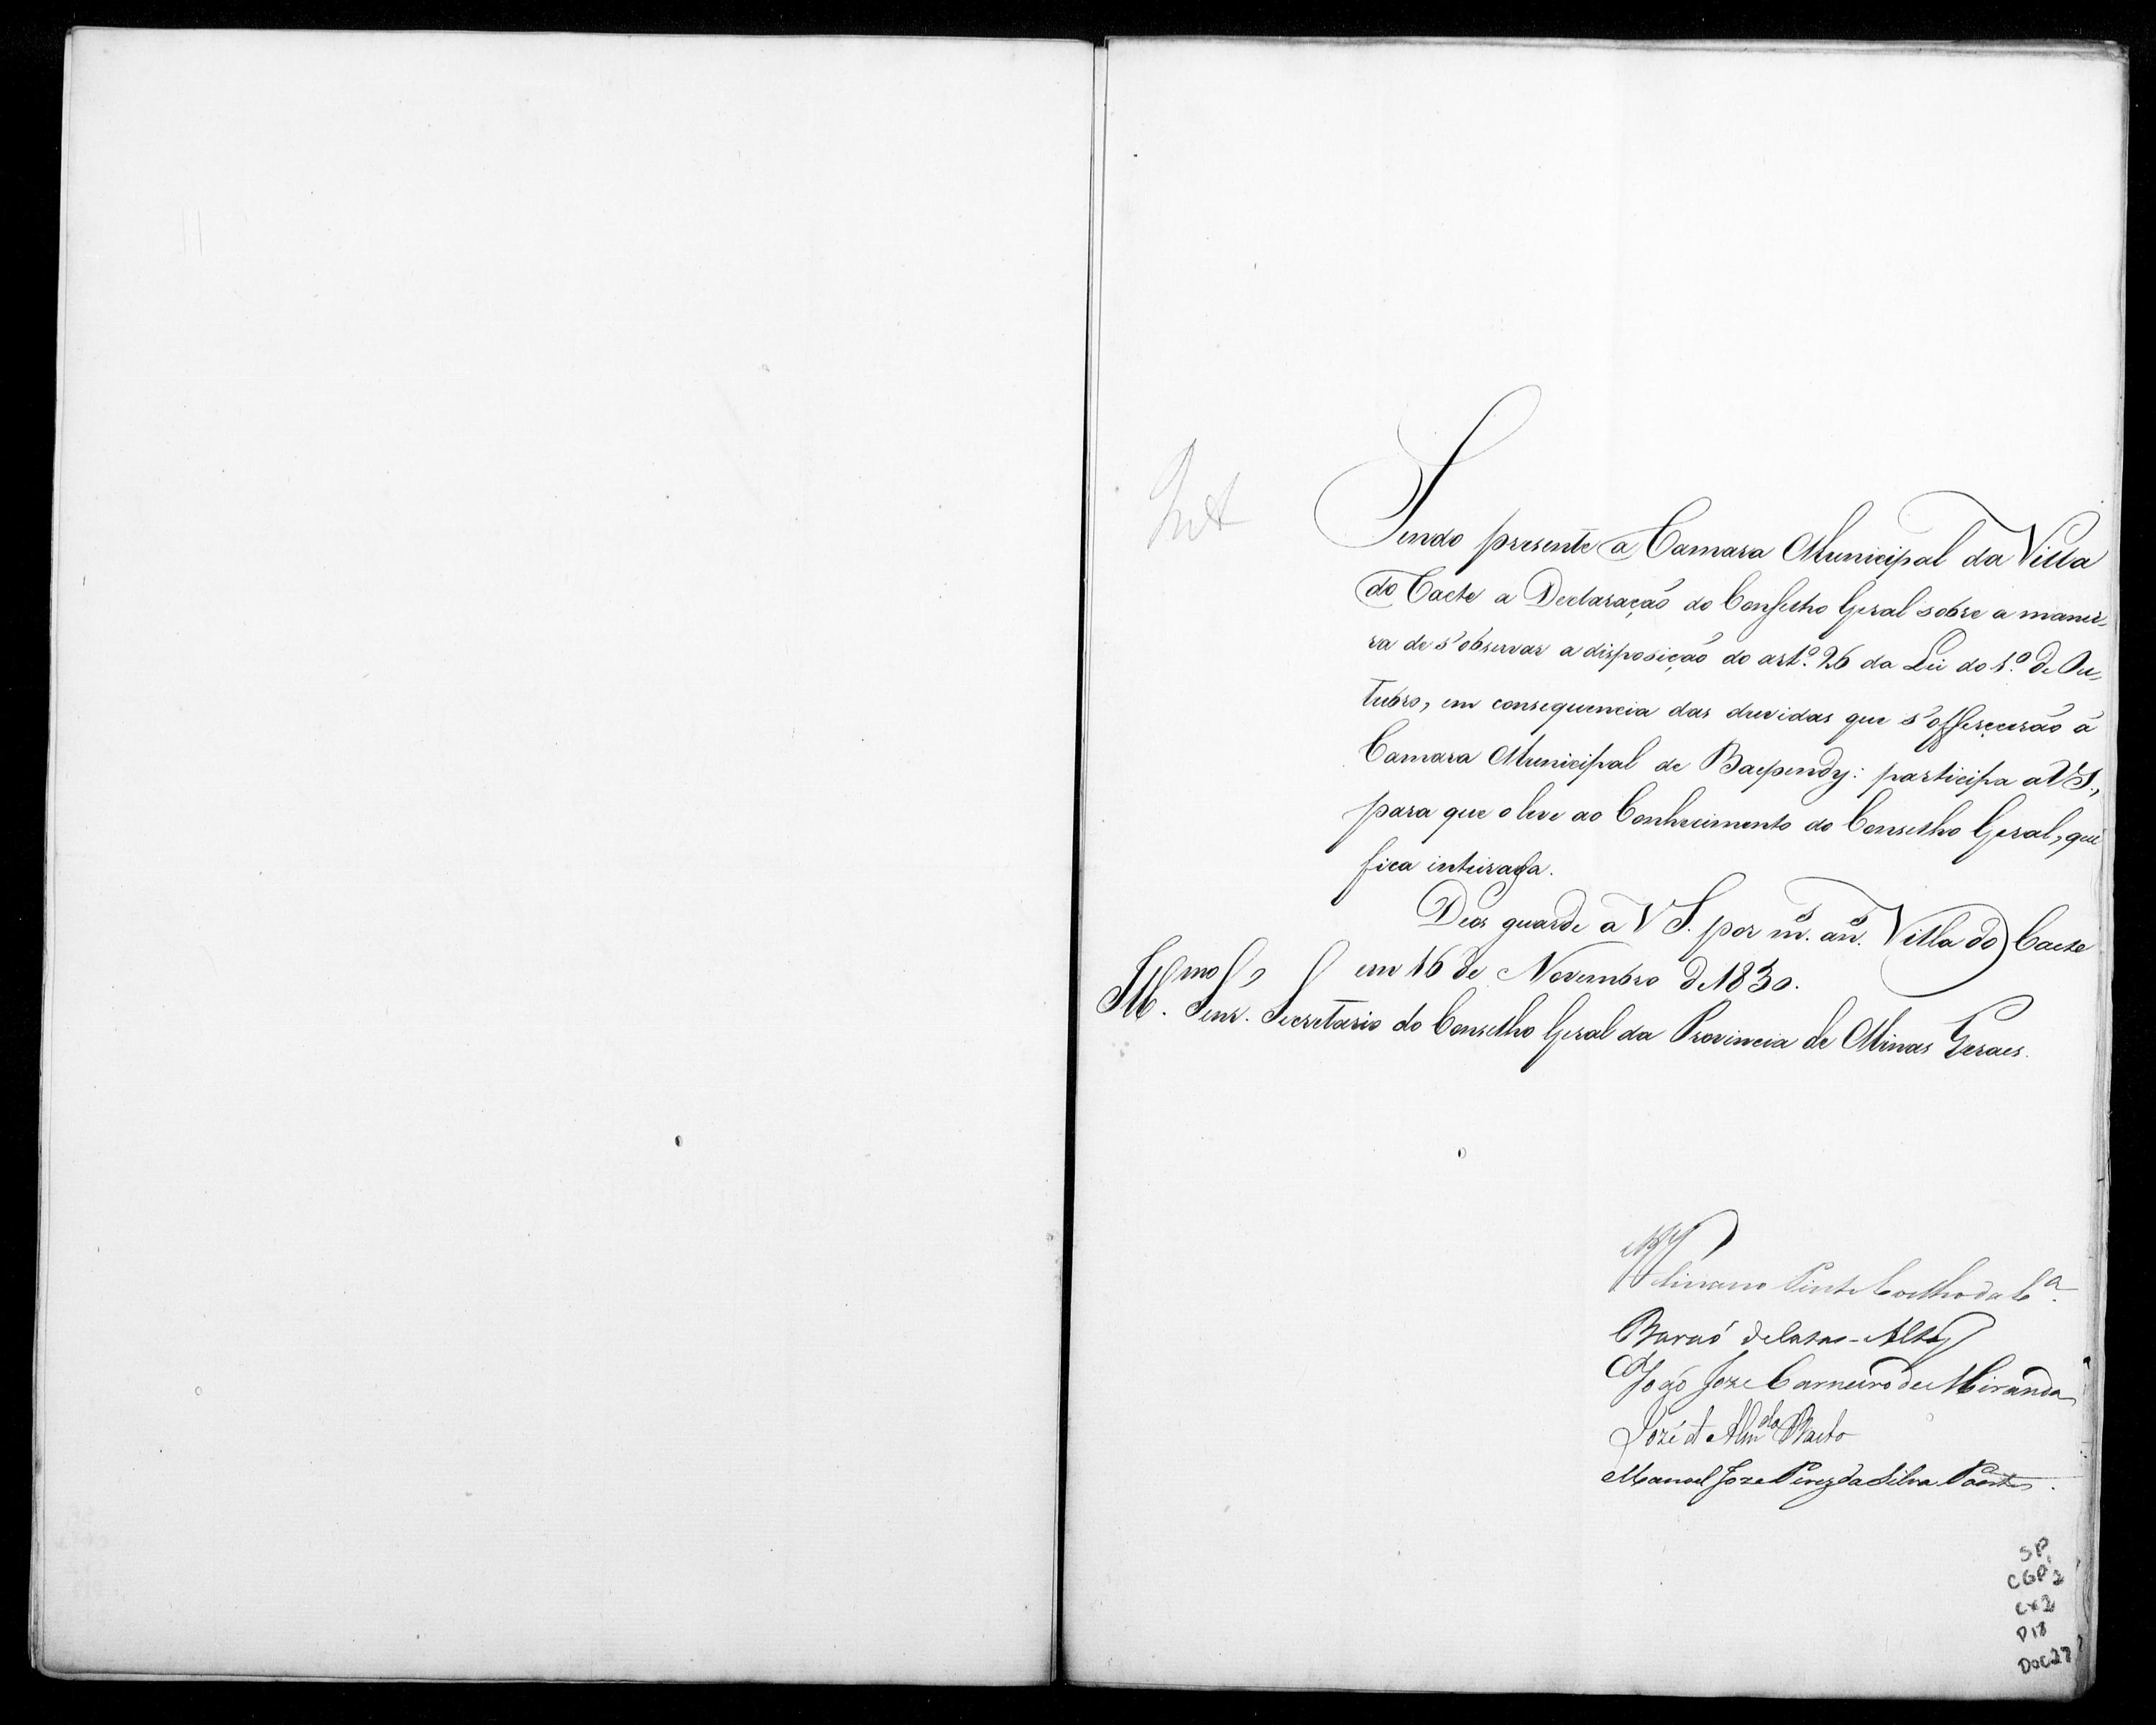 Int
Sendo presente a Camara Municipal da Villa
do Caete a Declaração do Conselho Geral sobre a manei-
ra de s'observar a disposição do artº. 26 da Lei do 1º. de Ou-
tubro, em consequencia das duvidas que s'offerecerão á
Camara Municipal de Baependy: participa a VS.,
para que o leve ao Conhecimento do Conselho Geral, que
fica inteirada.
Deos guarde a V S. por ms. ans. Villa do Caete
em 16 de Novembro de 1830.
Illmo. Senr. Secretario do Conselho Geral da Provincia de Minas Geraes.
Feliciano Pinto Coelho da Ca.
Barão de Catas-Altas
João Joze Carneiro de Miranda
José Baeto
Manoel Joze Pires da Silva Pontes
SP
CGP 2
Cx2
P18
DOC27